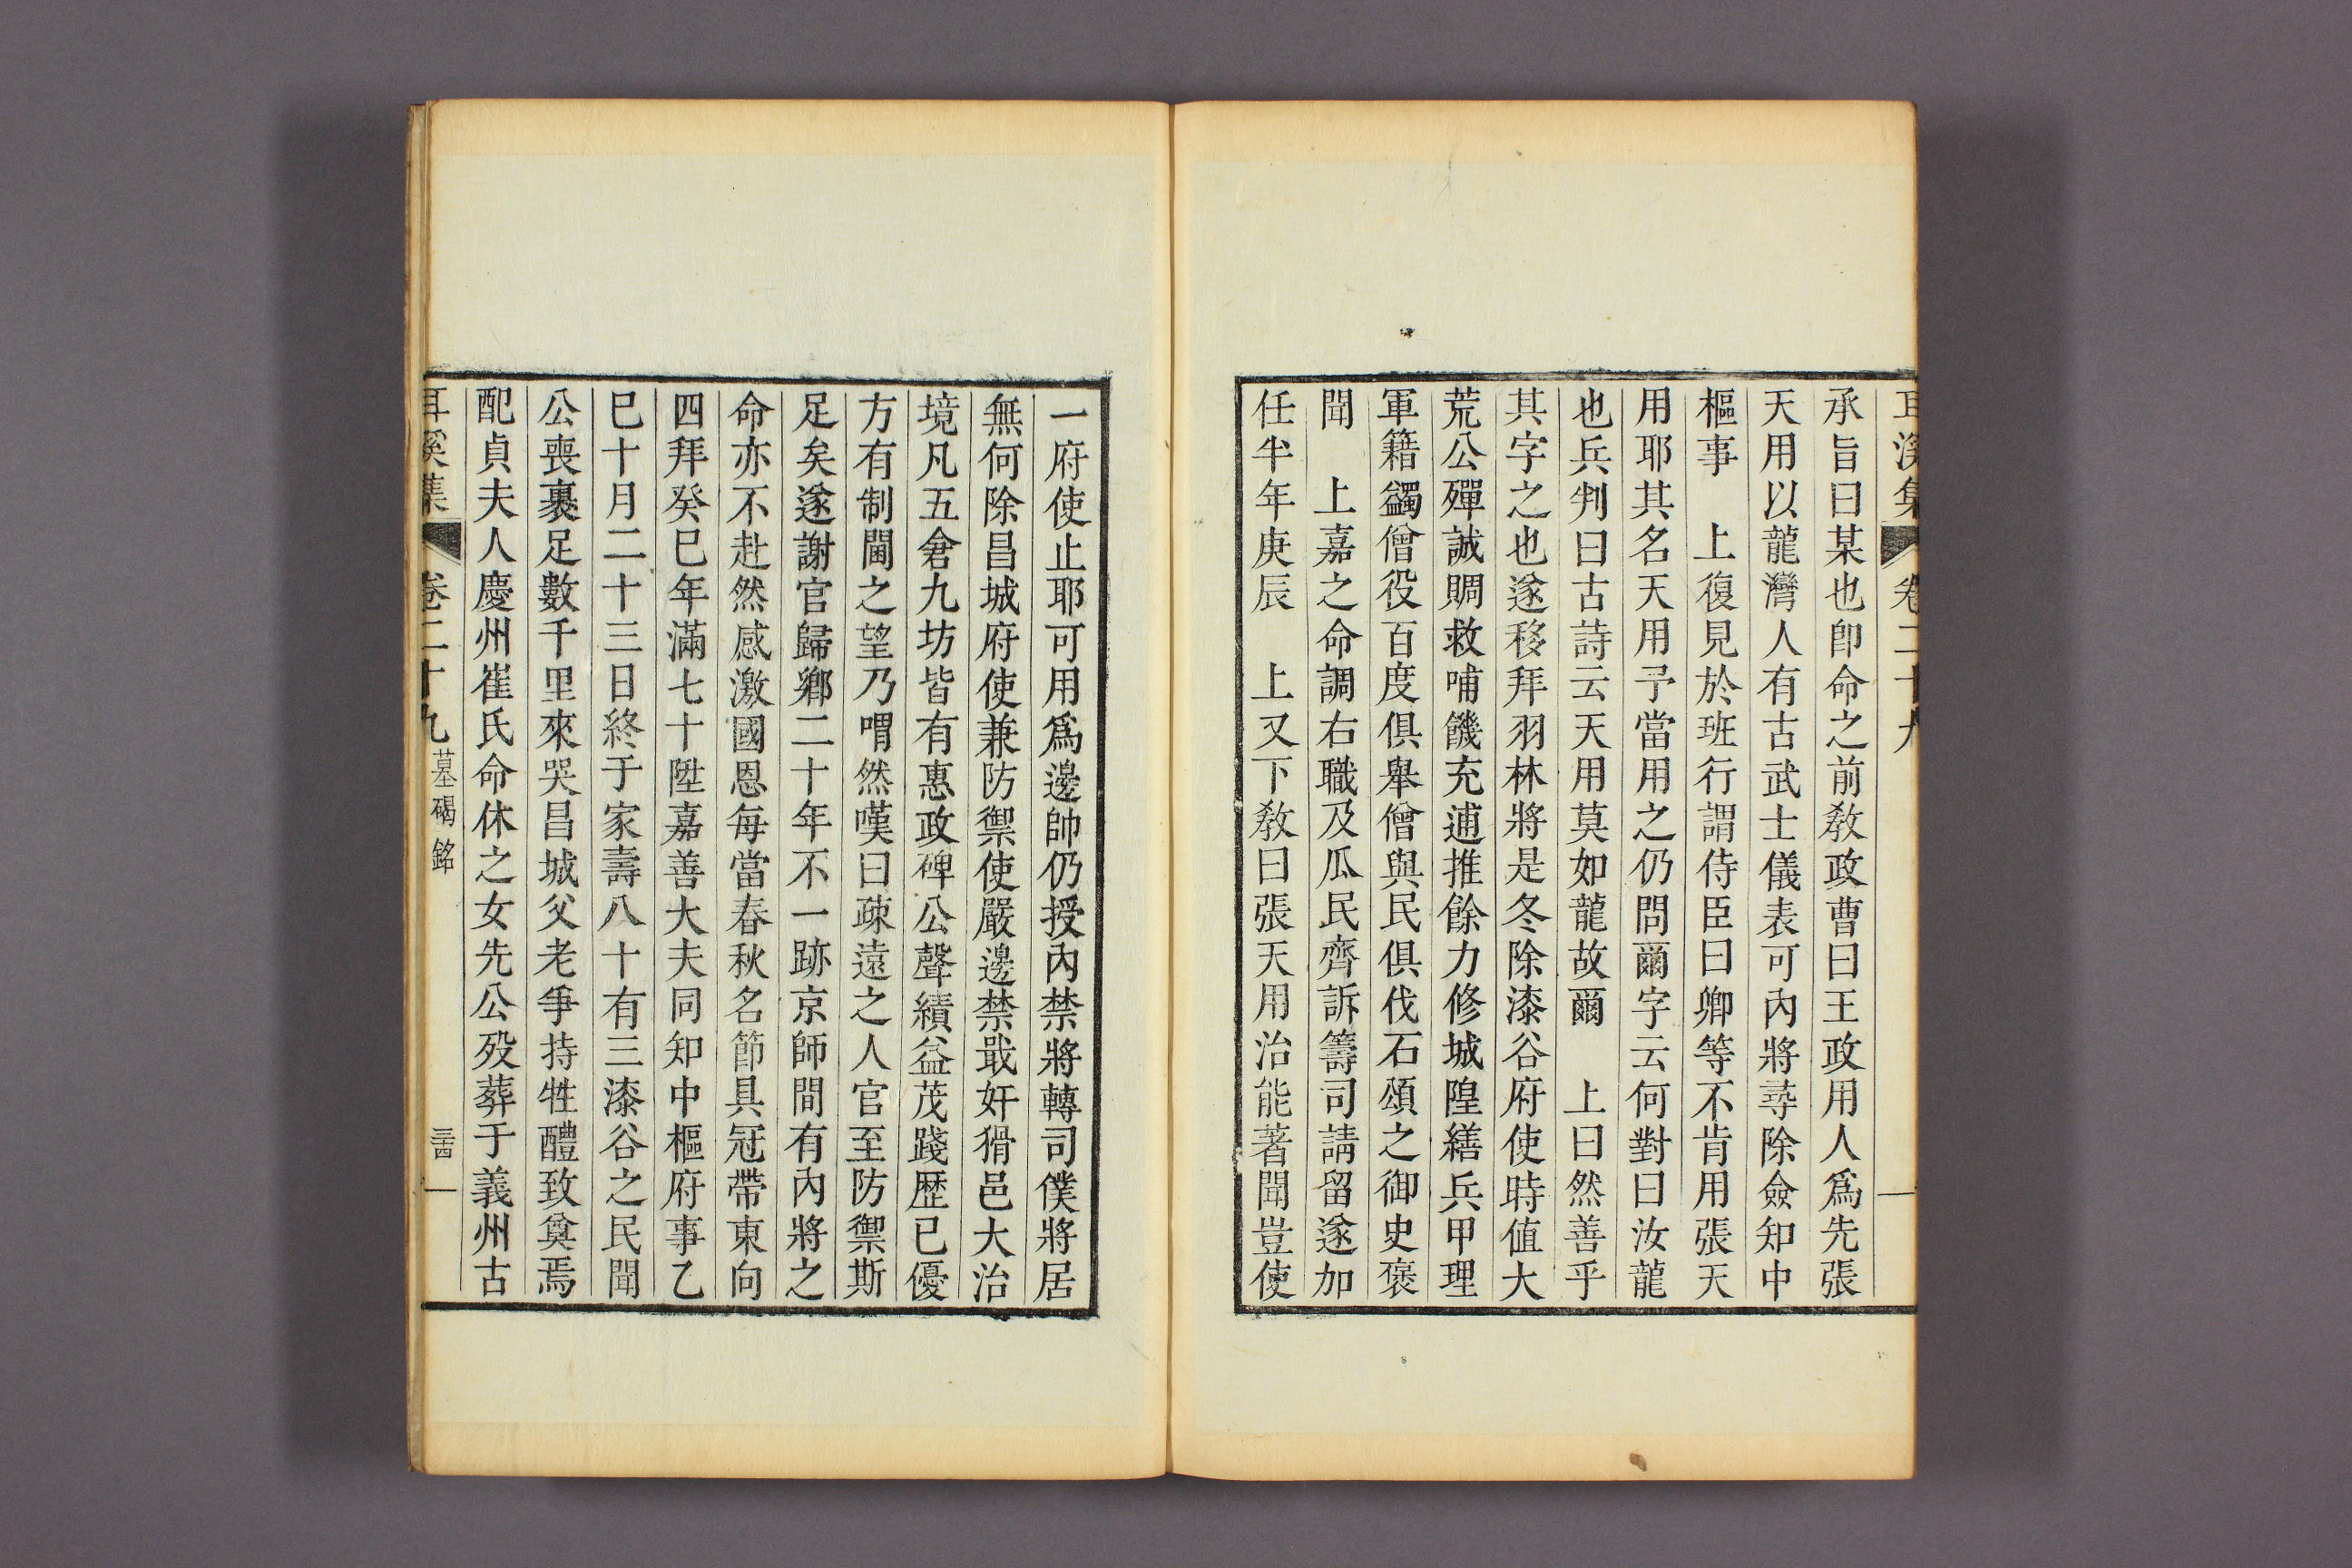 耳溪集 卷二十九
承旨曰某也卽命之前敎政曹曰王政用人爲先張
天用以龍灣人有古武士儀表可內將尋除僉知中
樞事 上復見於班行謂侍臣曰卿等不肯用張天
用耶其名天用予當用之仍問爾字云何對曰汝龍
也兵判曰古詩云天用莫如龍故爾 上曰然善乎
其字之也遂移拜羽林將是冬除漆谷府使時值大
荒公殫誠賙救哺饑充逋推餘力修城隍繕兵甲理
軍籍蠲僧役百度俱舉僧與民俱伐石頌之御史褒
聞 上嘉之命調右職及瓜民齊訴籌司請留遂加
任半年庚辰 上又下敎曰張天用治能著聞豈使
一府使止耶可用爲邊帥仍授內禁將轉司僕將居
無何除昌城府使兼防禦使嚴邊禁戢奸猾邑大治
境凡五倉九坊皆有惠政碑公聲績益茂踐歷已優
方有制閫之望乃喟然嘆曰疎遠之人官至防禦斯
足矣遂謝官歸鄕二十年不一跡京師間有內將之
命亦不赴然感激國恩每當春秋名節具冠帶東向
四拜癸巳年滿七十陞嘉善大夫同知中樞府事乙
巳十月二十三日終于家壽八十有三漆谷之民聞
公喪裹足數千里來哭昌城父老爭持牲醴致奠焉
配貞夫人慶州崔氏命休之女先公歿葬于義州古
耳溪集 卷二十九 墓碣銘 三十四